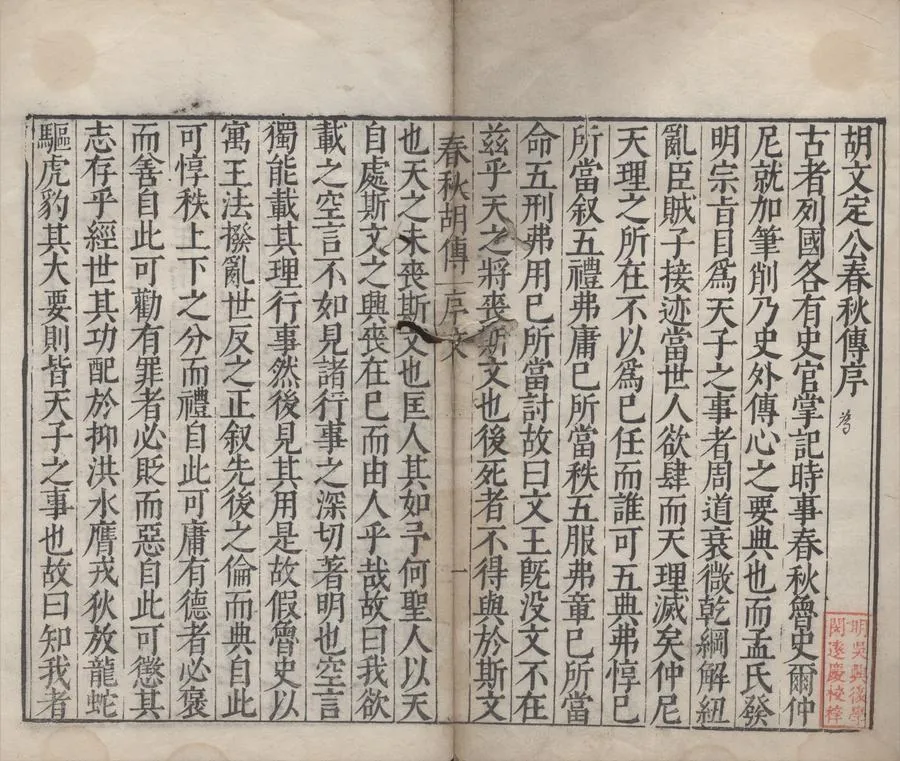 胡文定公春秋傳序
古者列國各有史官掌記時事春秋魯史爾仲
尼就加筆削乃史外傳心之要典也而孟氏發
明宗㫖目爲天子之事者周道衰微乾綱解紐
亂臣賊子接迹當世人欲肆而天理滅矣仲尼
天理之所在不以爲己任而誰可五典弗惇己
所當叙五禮弗庸己所當秩五服弗章己所當
命五刑弗用己所當討故曰文王既没文不在
兹乎天之將喪斯文也後死者不得與於斯文
春秋胡傳
序文
一
也天之未喪斯文也匡人其如予何聖人以天
自處斯文之興喪在己而由人乎哉故曰我欲
載之空言不如見諸行事之深切著明也空言
獨能載其理行事然後見其用是故假魯史以
寓王法撥亂世反之正叙先後之倫而典自此
可惇秩上下之分而禮自此可庸有德者必褒
而善自此可勸有罪者必貶而惡自此可懲其
志存乎經世其功配於抑洪水膺戎狄放龍蛇
驅虎豹其大要則皆天子之事也故曰知我者
明吳興後學
閔遂慶校梓